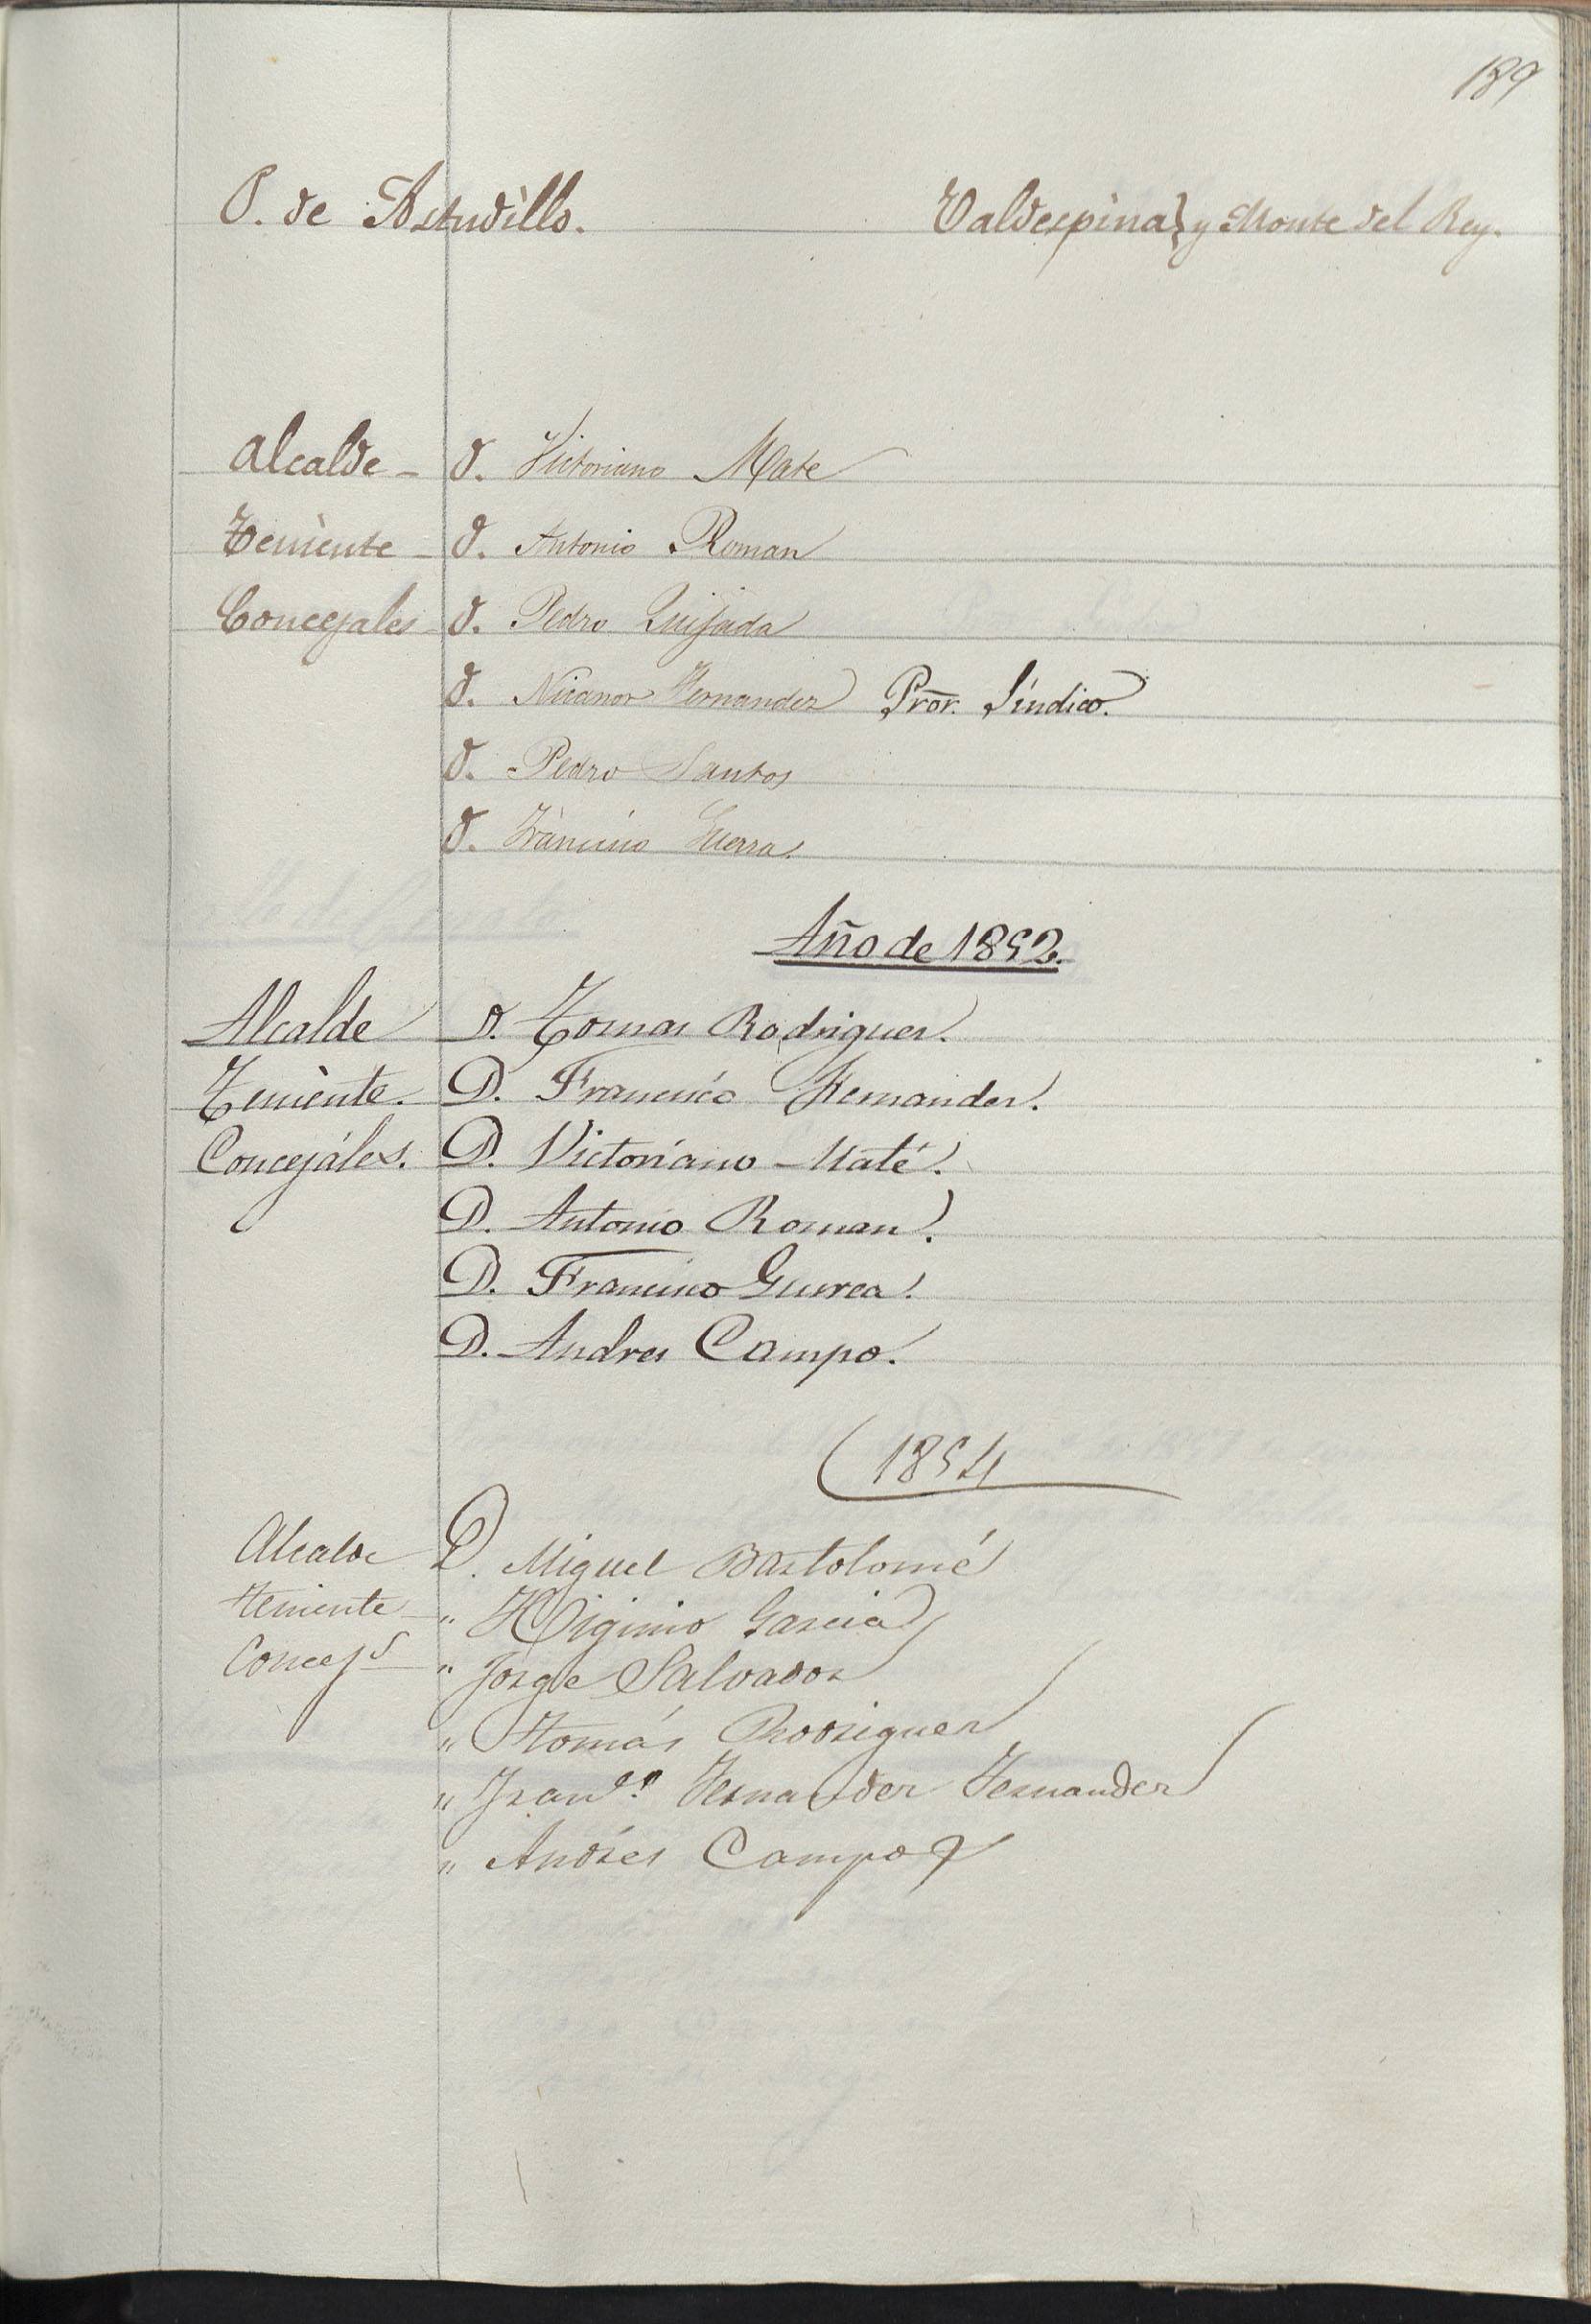 189
P. de Astudillo. Valdespina y Monte del Rey.
Alcalde - D. Victoriano Mate
Teniente - D. Antonio Roman
Concejales D. Pedro Quijada
D. Nicanor Hernandez Pror. Síndico.
D. Pedro Santos
D. Francisco Guerra
Año de 1852.
Alcalde D. Tomas Rodriguez.
Teniente. D. Francisco Hernandez.
Concejáles. D. Victoriano Maté.
D. Antonio Roman.
D. Francisco Guerra.
D. Andres Campo.
1854
Alcalde D. Miguel Bartolomé
Teniente " Higinio Garcia
Concejs " Jorge Salvador
" Tomás Rodriguez
" Franco. Fernandez Fernandez
" Andres Campo